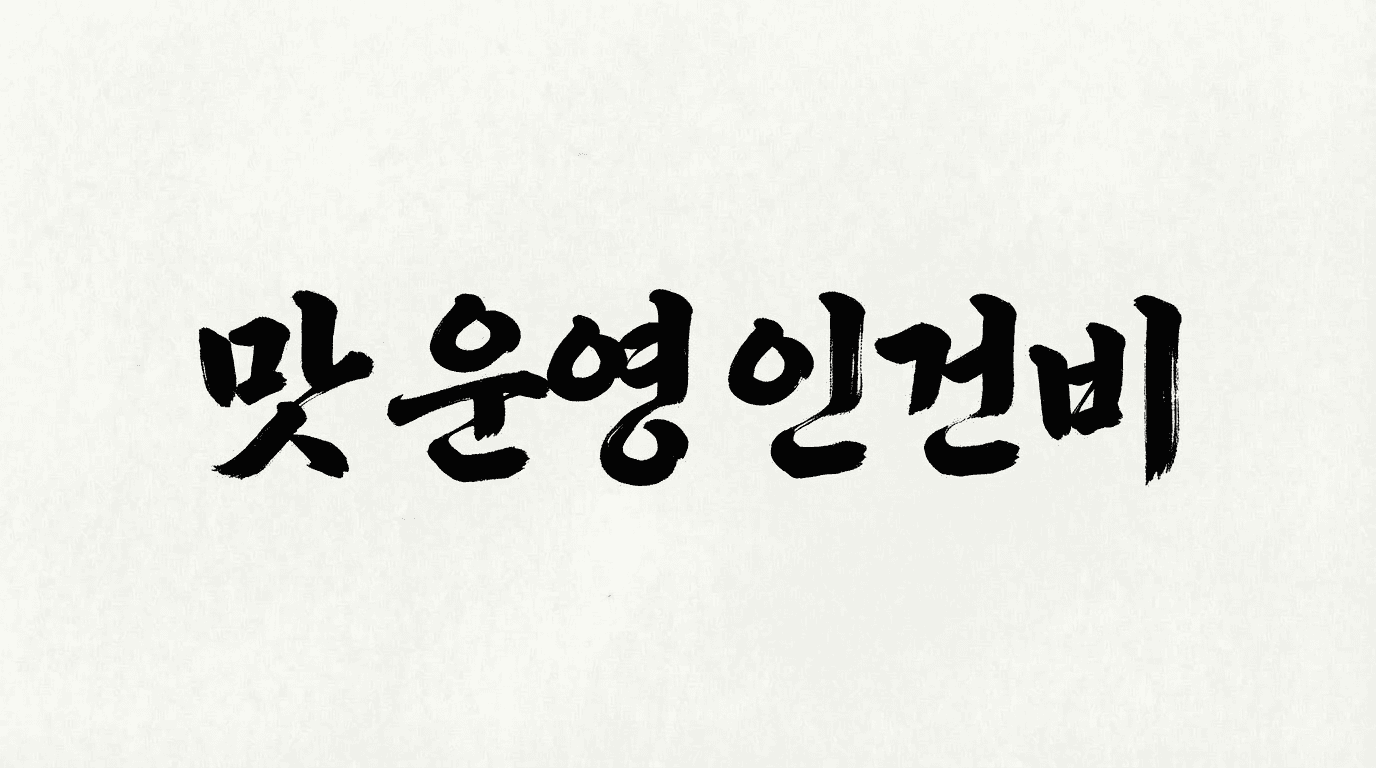 맛 운영 인건비